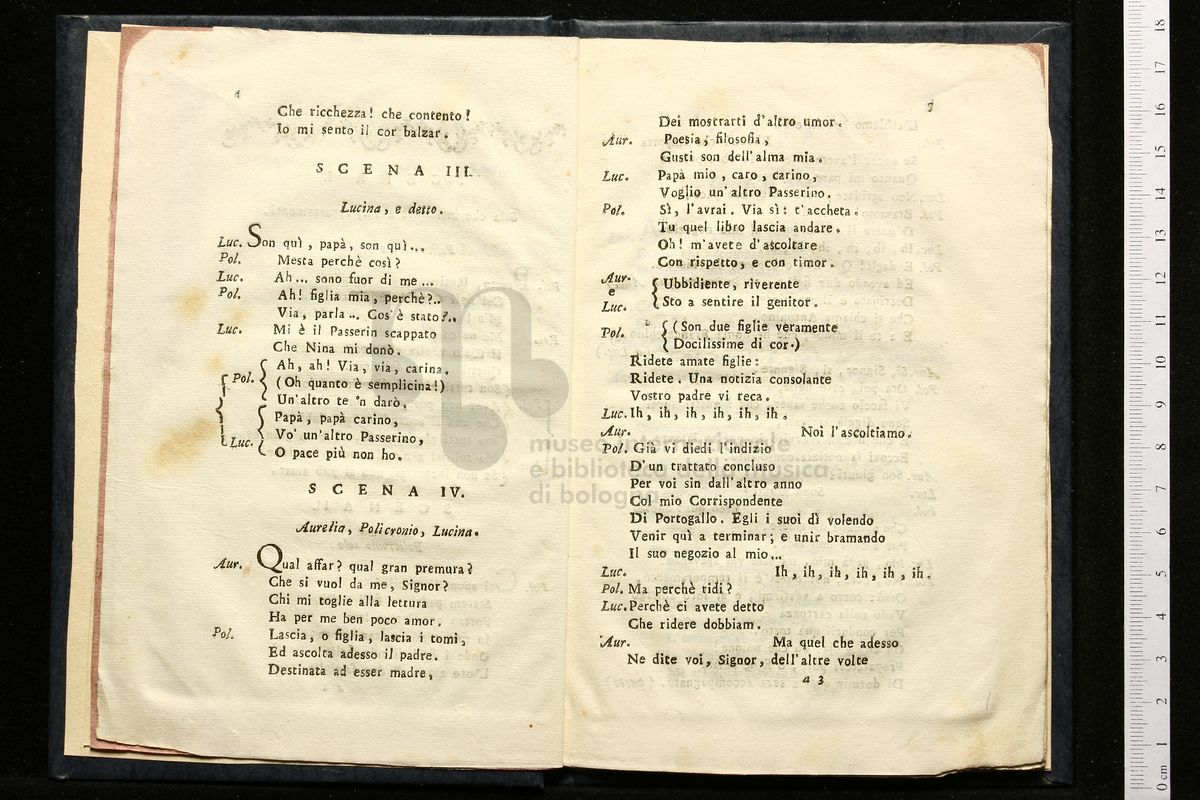 4
Che ricchezza! che contento!
Io mi sento il cor balzar.
SCENA III.
Lucina, e detto.
Luc. Son quì, papà, son quì...
Pol. Mesta perchè così?
Luc. Ah... sono fuor di me...
Pol. Ah! figlia mia, perchè?..
Via, parla.. Cos'è stato?..
Luc. Mi è il Passerin scappato
Che Nina mi donò.
Ah, ah! Via, via, carina.
Pol. (Oh quanto è semplicina!)
Un'altro te 'n darò.
Papà, papà carino,
Vo' un'altro Passerino,
Luc. O pace più non ho.
SCENA IV.
Aurelia, Policronio, Lucina.
Aur. Qual affar? qual gran premura?
Che si vuol da me, Signor?
Chi mi toglie alla lettura
Ha per me ben poco amor.
Pol. Lascia, o figlia, lascia i tomi,
Ed ascolta adesso il padre.
Destinata ad esser madre,
Dei mostrarti d'altro umor.
Aur. Poesia, filosofia,
Gusti son dell'alma mia.
Luc. Papà mio, caro, carino,
Voglio un'altro Passerino.
Pol. Sì, l'avrai. Via sì: t'accheta.
Tu quel libro lascia andare.
Oh! m'avete d'ascoltare
Con rispetto, e con timor.
Aur. Ubbidiente, riverente
e
Luc. Sto a sentire il genitor.
Pol. (Son due figlie veramente
Docilissime di cor.)
Ridete amate figlie:
Ridete. Una notizia consolante
Vostro padre vi reca.
Luc. Ih, ih, ih, ih, ih, ih.
Aur. Noi l'ascoltiamo.
Pol. Già vi diedi l'indizio
D'un trattato concluso
Per voi sin dall'altro anno
Col mio Corrispondente
Di Portogallo. Egli i suoi dì volendo
Venir quì a terminar; e unir bramando
Il suo negozio al mio...
Luc. Ih, ih, ih, ih, ih, ih.
Pol. Ma perchè ridi?
Luc. Perchè ci avete detto
Che ridere dobbiam.
Aur. Ma quel che adesso
Ne dite voi, Signor, dell'altre volte
a 3
museo internazionale
e biblioteca della musica
di bologna
0 cm 1 2 3 4 5 6 7 8 9 10 11 12 13 14 15 16 17 18